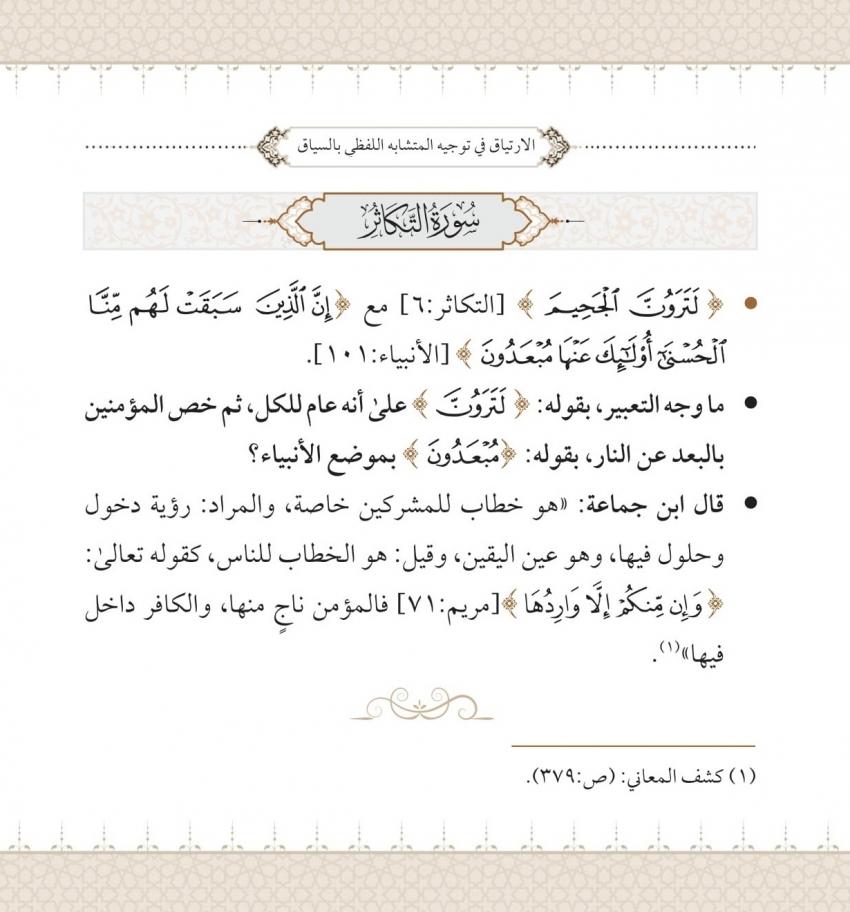 الارتياق في توجيه المتشابه اللفظي بالسياق
سُورَةُ التَّكَاثُرِ
• ﴿ لَتَرَوُنَّ ٱلْجَحِيمَ ﴾ [التكاثر:٦] مع ﴿إِنَّ ٱلَّذِينَ سَبَقَتْ لَهُم مِّنَّا
ٱلْحُسْنَىٰٓ أُو۟لَٰٓئِكَ عَنْهَا مُبْعَدُونَ ﴾ [الأنبياء:١٠١].
• ما وجه التعبير، بقوله: ﴿ لَتَرَوُنَّ ﴾ علىٰ أنه عام للكل، ثم خص المؤمنين
بالبعد عن النار، بقوله: ﴿مُبْعَدُونَ ﴾ بموضع الأنبياء؟
• قال ابن جماعة: «هو خطاب للمشركين خاصة، والمراد: رؤية دخول
وحلول فيها، وهو عين اليقين، وقيل: هو الخطاب للناس، كقوله تعالىٰ:
﴿ وَإِن مِّنكُمْ إِلَّا وَارِدُهَا ﴾[مريم:٧١] فالمؤمن ناجٍ منها، والكافر داخل
فيها»(١).
(١) كشف المعاني: (ص:٣٧٩).